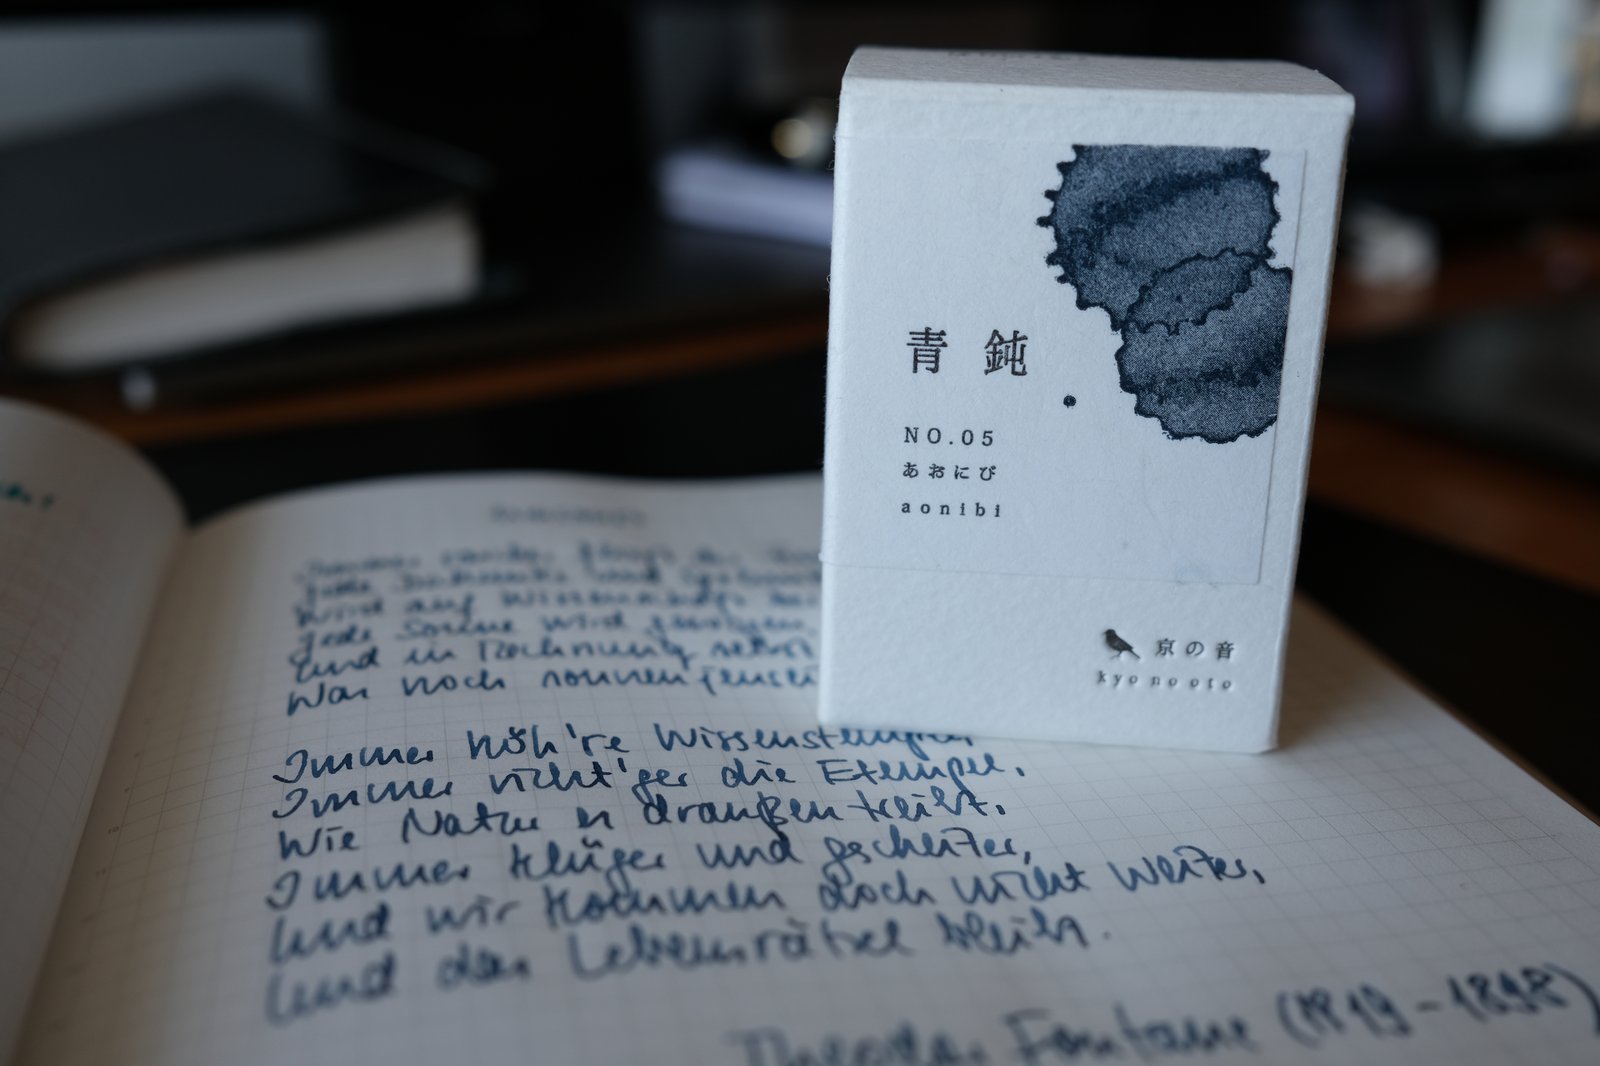 青鈍
NO.05
あおにび
aonibi
京の音
kyo no oto
Wird auf
Jede Sonne wird gewogen,
Und in Rechnung selbst
Was noch sonnenjensei
Immer höh're Wissenstempel
Immer richt'ger die Exempel,
Wie Natur es draußen treibt,
Immer klüger und gescheiter,
Und wir kommen doch nicht weiter,
Und das Lebensrätsel bleibt.
Theodor Fontane (1819-1898)